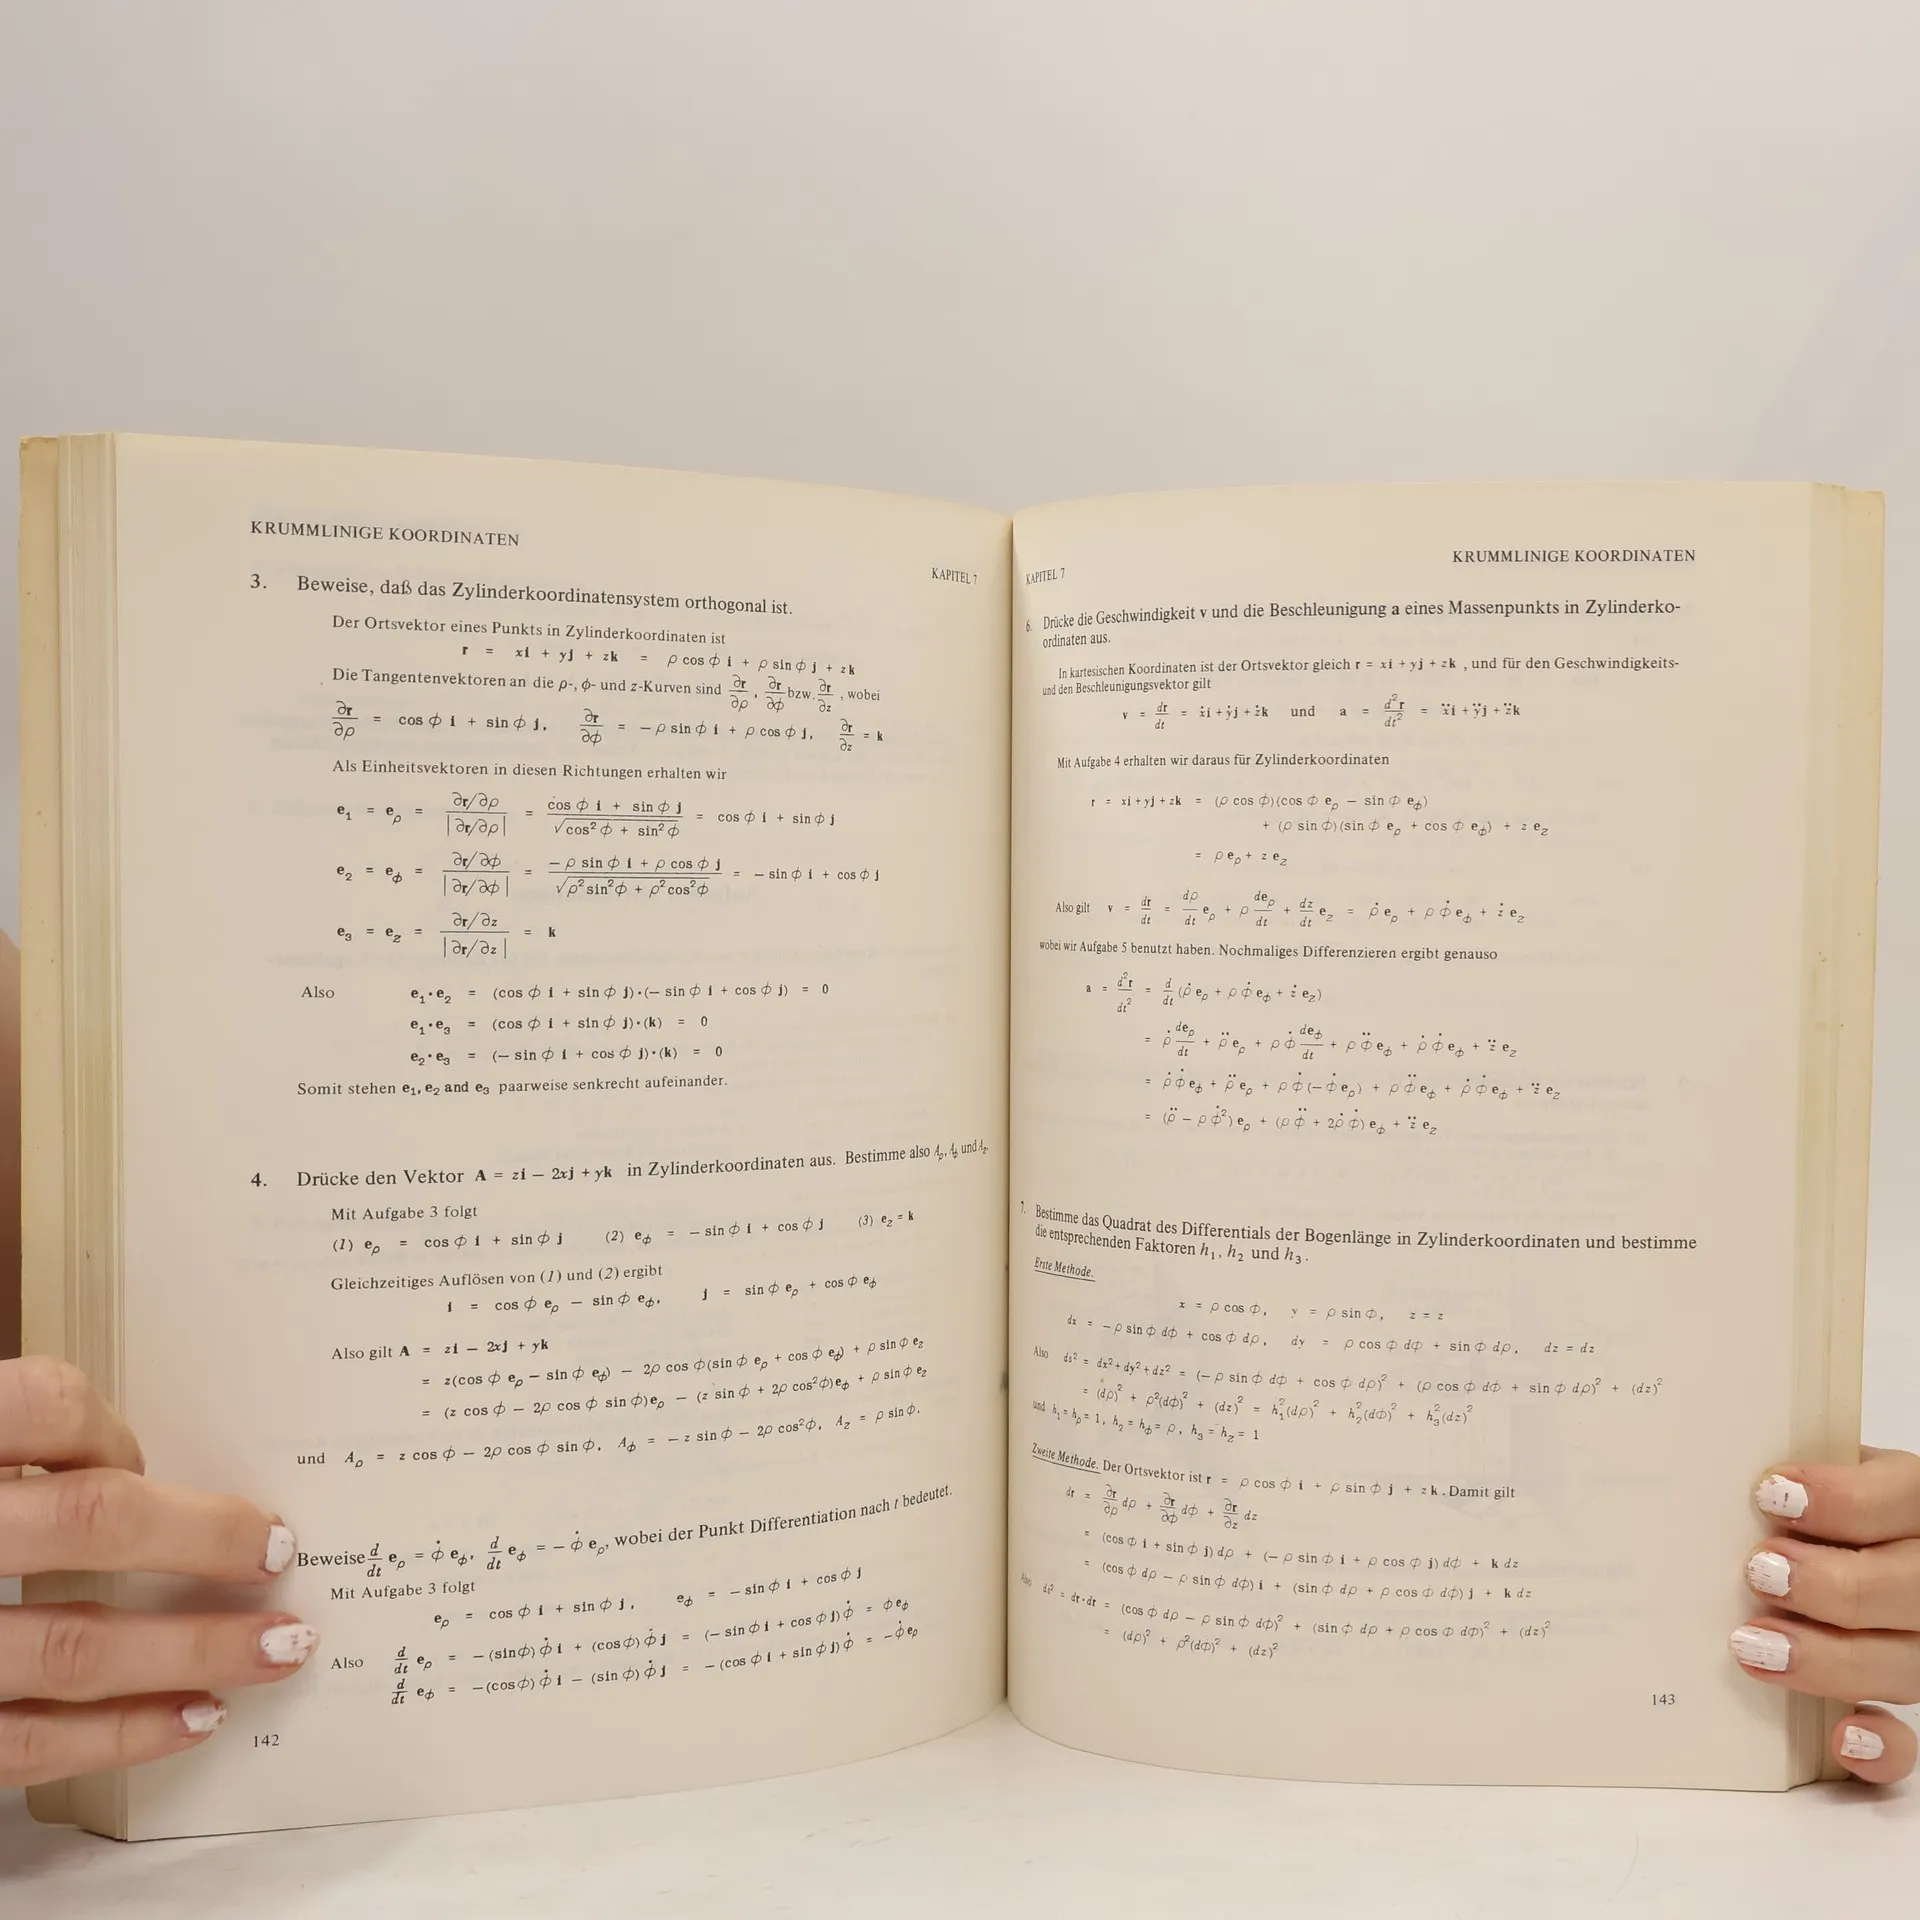 KRUMMLINIGE KOORDINATEN
KAPITEL 7
3. Beweise, daß das Zylinderkoordinatensystem orthogonal ist.
Der Ortsvektor eines Punkts in Zylinderkoordinaten ist
r = xi + yj + zk = ρ cos ϕ i + ρ sin ϕ j + zk
Die Tangentenvektoren an die ρ-, ϕ- und z-Kurven sind ∂r/∂ρ, ∂r/∂ϕ bzw. ∂r/∂z, wobei
∂r/∂ρ = cos ϕ i + sin ϕ j, ∂r/∂ϕ = −ρ sin ϕ i + ρ cos ϕ j, ∂r/∂z = k
Als Einheitsvektoren in diesen Richtungen erhalten wir
e₁ = e_ρ = (∂r/∂ρ)/|∂r/∂ρ| = (cos ϕ i + sin ϕ j)/√(cos² ϕ + sin² ϕ) = cos ϕ i + sin ϕ j
e₂ = e_ϕ = (∂r/∂ϕ)/|∂r/∂ϕ| = (−ρ sin ϕ i + ρ cos ϕ j)/√(ρ² sin² ϕ + ρ² cos² ϕ) = − sin ϕ i + cos ϕ j
e₃ = e_z = (∂r/∂z)/|∂r/∂z| = k
Also e₁·e₂ = (cos ϕ i + sin ϕ j)·(− sin ϕ i + cos ϕ j) = 0
e₁·e₃ = (cos ϕ i + sin ϕ j)·(k) = 0
e₂·e₃ = (− sin ϕ i + cos ϕ j)·(k) = 0
Somit stehen e₁, e₂ and e₃ paarweise senkrecht aufeinander.
4. Drücke den Vektor A = zi − 2xj + yk in Zylinderkoordinaten aus. Bestimme also A_ρ, A_ϕ und A_z.
Mit Aufgabe 3 folgt
(1) e_ρ = cos ϕ i + sin ϕ j (2) e_ϕ = − sin ϕ i + cos ϕ j (3) e_z = k
Gleichzeitiges Auflösen von (1) und (2) ergibt
i = cos ϕ e_ρ − sin ϕ e_ϕ, j = sin ϕ e_ρ + cos ϕ e_ϕ
Also gilt A = zi − 2xj + yk
= z(cos ϕ e_ρ − sin ϕ e_ϕ) − 2ρ cos ϕ(sin ϕ e_ρ + cos ϕ e_ϕ) + ρ sin ϕ e_z
= (z cos ϕ − 2ρ cos ϕ sin ϕ)e_ρ − (z sin ϕ + 2ρ cos² ϕ)e_ϕ + ρ sin ϕ e_z
und A_ρ = z cos ϕ − 2ρ cos ϕ sin ϕ, A_ϕ = − z sin ϕ − 2ρ cos² ϕ, A_z = ρ sin ϕ.
Beweise d/dt e_ρ = ϕ̇ e_ϕ, d/dt e_ϕ = − ϕ̇ e_ρ, wobei der Punkt Differentiation nach t bedeutet.
Mit Aufgabe 3 folgt
e_ρ = cos ϕ i + sin ϕ j, e_ϕ = − sin ϕ i + cos ϕ j
Also d/dt e_ρ = −(sin ϕ) ϕ̇ i + (cos ϕ) ϕ̇ j = (− sin ϕ i + cos ϕ j) ϕ̇ = ϕ̇ e_ϕ
d/dt e_ϕ = −(cos ϕ) ϕ̇ i − (sin ϕ) ϕ̇ j = −(cos ϕ i + sin ϕ j) ϕ̇ = −ϕ̇ e_ρ
142
KAPITEL 7
KRUMMLINIGE KOORDINATEN
6. Drücke die Geschwindigkeit v und die Beschleunigung a eines Massenpunkts in Zylinderko-
ordinaten aus.
In kartesischen Koordinaten ist der Ortsvektor gleich r = xi + yj + zk , und für den Geschwindigkeits-
und den Beschleunigungsvektor gilt
v = dr/dt = ẋi + ẏj + żk und a = d²r/dt² = ẍi + ÿj + z̈k
Mit Aufgabe 4 erhalten wir daraus für Zylinderkoordinaten
r = xi + yj + zk = (ρ cos ϕ)(cos ϕ e_ρ − sin ϕ e_ϕ)
+ (ρ sin ϕ)(sin ϕ e_ρ + cos ϕ e_ϕ) + z e_z
= ρ e_ρ + z e_z
Also gilt v = dr/dt = dρ/dt e_ρ + ρ de_ρ/dt + dz/dt e_z = ρ̇ e_ρ + ρ ϕ̇ e_ϕ + ż e_z
wobei wir Aufgabe 5 benutzt haben. Nochmaliges Differenzieren ergibt genauso
a = d²r/dt² = d/dt (ρ̇ e_ρ + ρ ϕ̇ e_ϕ + ż e_z)
= ρ̇ de_ρ/dt + ρ̈ e_ρ + ρ ϕ̇ de_ϕ/dt + ρ ϕ̈ e_ϕ + ρ̇ ϕ̇ e_ϕ + z̈ e_z
= ρ̇ ϕ̇ e_ϕ + ρ̈ e_ρ + ρ ϕ̇(− ϕ̇ e_ρ) + ρ ϕ̈ e_ϕ + ρ̇ ϕ̇ e_ϕ + z̈ e_z
= (ρ̈ − ρ ϕ̇²) e_ρ + (ρ ϕ̈ + 2ρ̇ ϕ̇) e_ϕ + z̈ e_z
7. Bestimme das Quadrat des Differentials der Bogenlänge in Zylinderkoordinaten und bestimme
die entsprechenden Faktoren h₁, h₂ und h₃.
Erste Methode.
x = ρ cos ϕ, y = ρ sin ϕ, z = z
dx = −ρ sin ϕ dϕ + cos ϕ dρ, dy = ρ cos ϕ dϕ + sin ϕ dρ, dz = dz
Also ds² = dx² + dy² + dz² = (−ρ sin ϕ dϕ + cos ϕ dρ)² + (ρ cos ϕ dϕ + sin ϕ dρ)² + (dz)²
= (dρ)² + ρ²(dϕ)² + (dz)² = h₁²(dρ)² + h₂²(dϕ)² + h₃²(dz)²
und h₁ = h_ρ = 1, h₂ = h_ϕ = ρ, h₃ = h_z = 1
Zweite Methode. Der Ortsvektor ist r = ρ cos ϕ i + ρ sin ϕ j + zk. Damit gilt
dr = ∂r/∂ρ dρ + ∂r/∂ϕ dϕ + ∂r/∂z dz
= (cos ϕ i + sin ϕ j) dρ + (− ρ sin ϕ i + ρ cos ϕ j) dϕ + k dz
= (cos ϕ dρ − ρ sin ϕ dϕ) i + (sin ϕ dρ + ρ cos ϕ dϕ) j + k dz
Also ds² = dr·dr = (cos ϕ dρ − ρ sin ϕ dϕ)² + (sin ϕ dρ + ρ cos ϕ dϕ)² + (dz)²
= (dρ)² + ρ²(dϕ)² + (dz)²
143